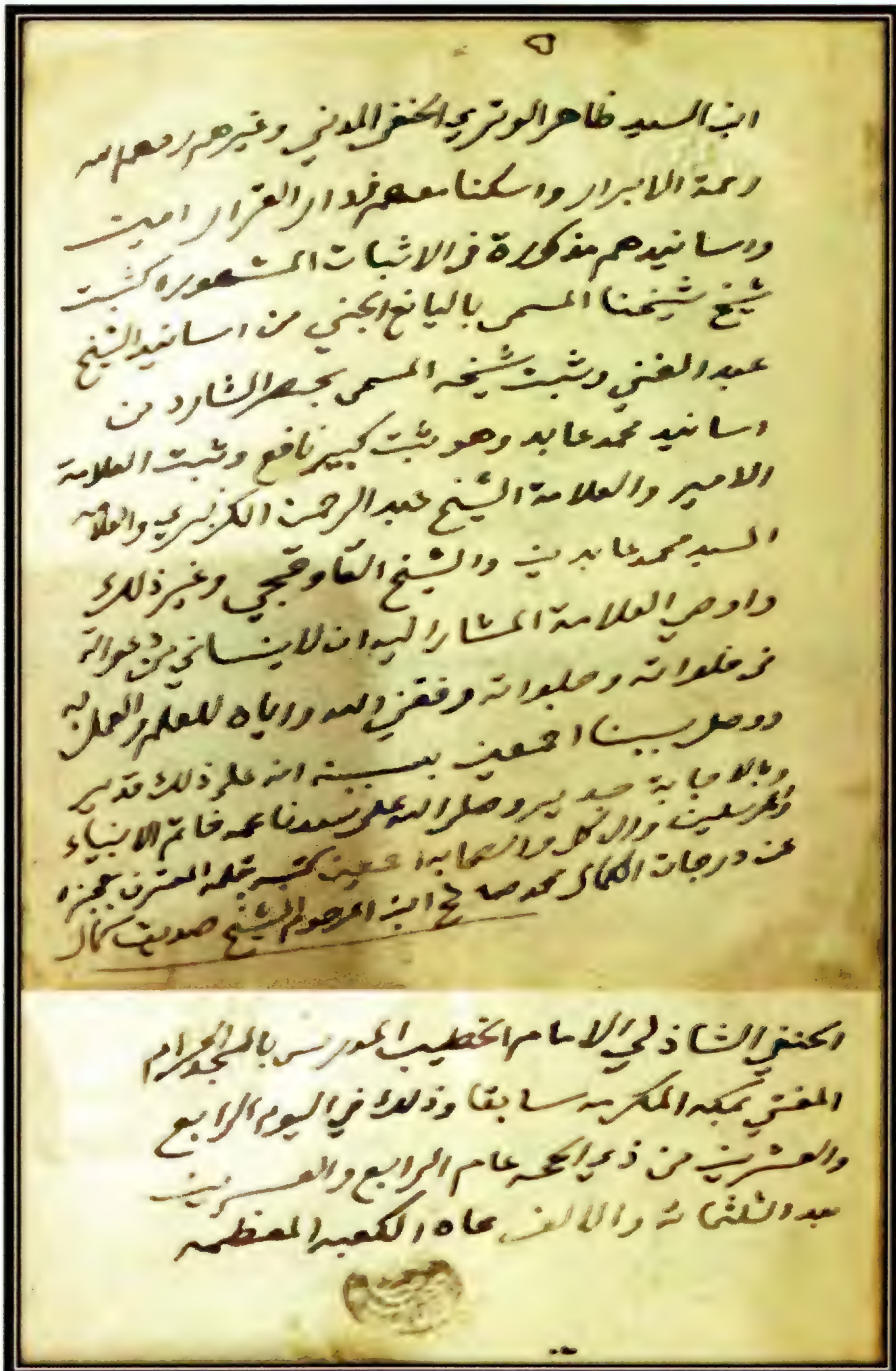 ٥
ابن السيد ظاهر الوتري الحنفي المدني وغيرهم رحمهم الله
رحمة الابرار واسكننا معهم فى دار القرار امين
واسانيدهم مذكورة فى الاثبات المشهوره كثبت
شيخ شيخنا المسمى باليانع الجني من اسانيد الشيخ
عبد الغني وثبت شيخه المسمى بحصر الشارد من
اسانيد محمد عابد وهو ثبت كبير نافع وثبت العلامة
الامير والعلامة الشيخ عبد الرحمن الكزبري والعلامه
السيد محمد عابدين والشيخ القاوقجي وغير ذلك
واوصي العلامة المشار اليه ان لا ينساني من دعواته
فى خلواته وجلواته وفقني الله واياه للعلم والعمل به
ووصل سببنا اجمعين بسببه انه على ذلك قدير
وبالاجابة جدير وصلى الله على سيدنا محمد خاتم الانبياء
والمرسلين وال كل والصحابه اجمعين كتبه بقلمه المعترف بعجزه
عن درجات الكمال محمد صالح ابن المرحوم الشيخ صديق كمال
الحنفي الشاذلي الامام الخطيب المدرس بالمسجد الحرام
المفتي بمكه المكرمه سابقا وذلك في اليوم الرابع
والعشرين من ذي الحجه عام الرابع والعشرين
بعد الثلثمائه والالف تجاه الكعبه المعظمه